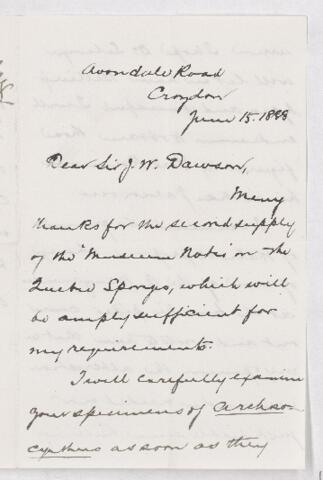 Avondale Road
Croydon
June 15. 1888
Dear Sir J. W. Dawson,
Many
thanks for the second supply
of the "Museum Notes" on the
Quebec Sponges, which will
be amply sufficient for
my requirements.
I will carefully examine
your specimens of Archæo-
cyathus as soon as they